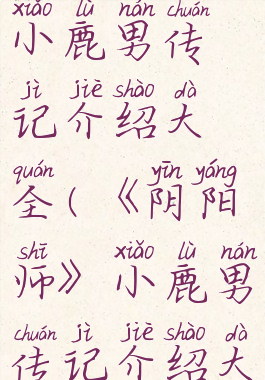 xiǎo lù nán chuán
小鹿男传
jì jiè shào dà
记介绍大
quán yīn yáng
全(《阴阳
shī xiǎo lù nán
师》小鹿男
chuán jì jiè shào dà
传记介绍大